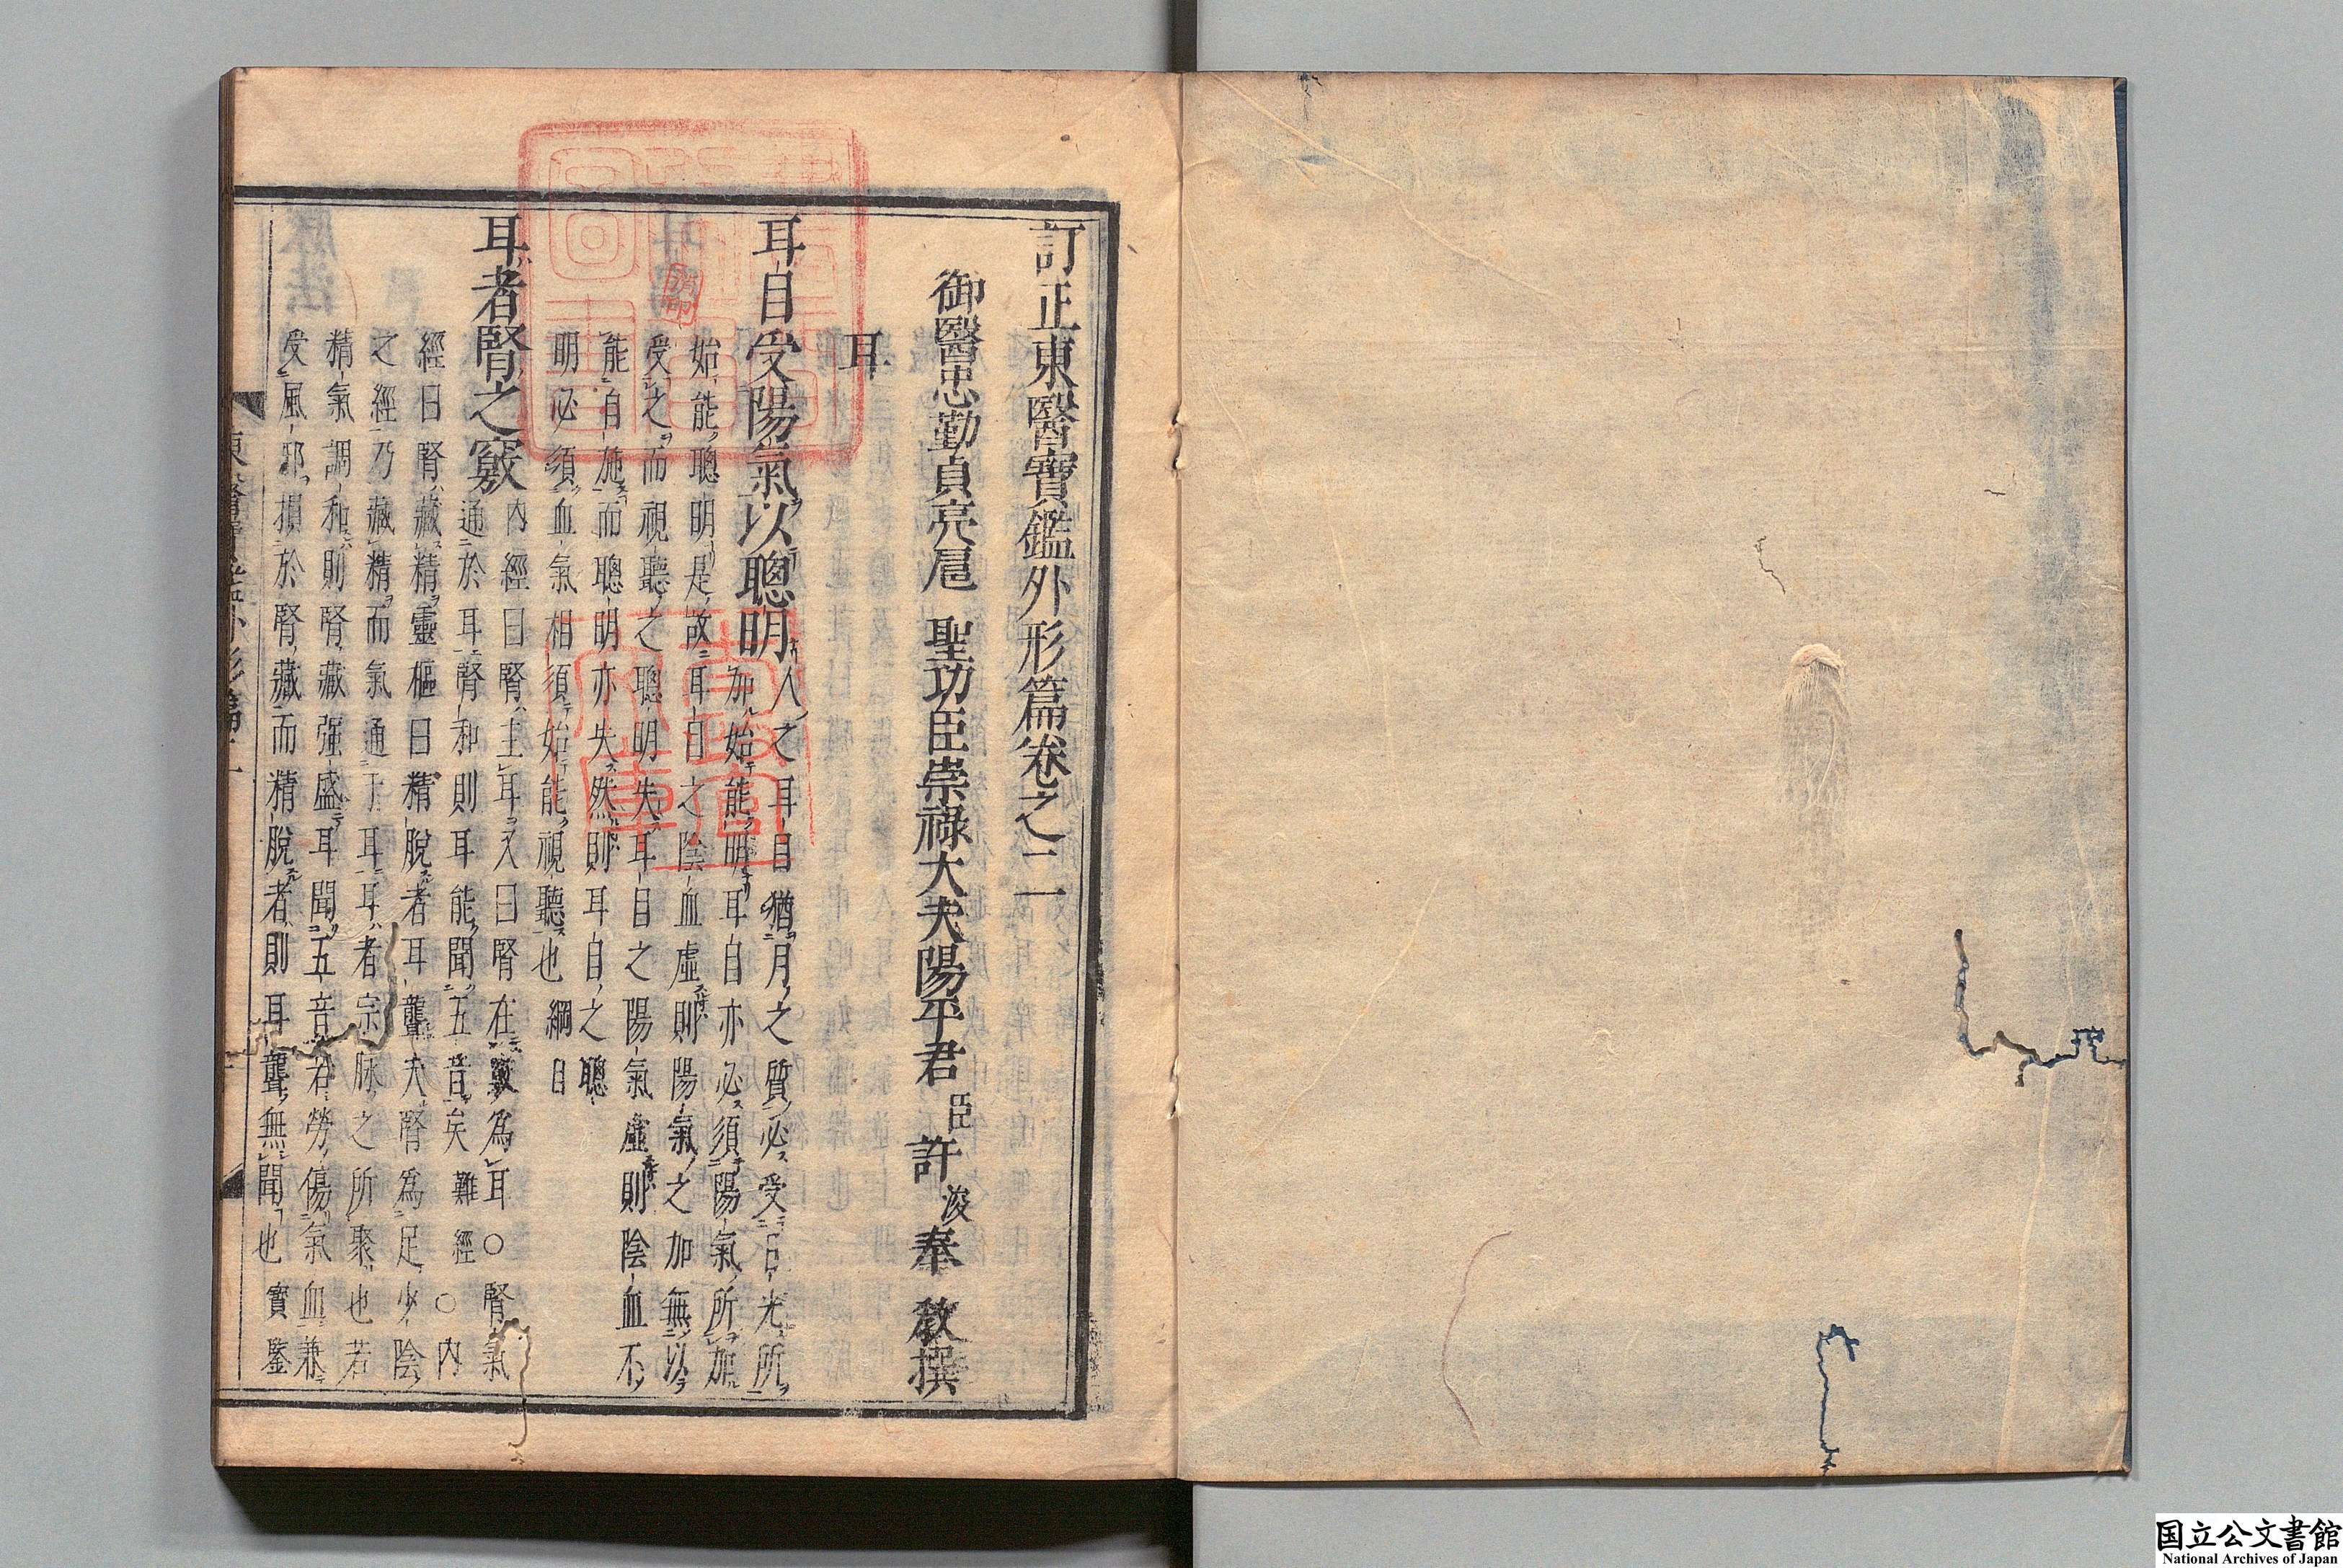 訂正東醫寶鑑外形篇卷之二
御醫忠勤貞亮扈 聖功臣崇祿大夫陽平君 臣 許 浚 奉 敎撰
耳
耳目受陽氣以聰明 人之耳目猶月之質必受日光所
加始能明耳目亦必須陽氣所加
始能聰明是故耳目之陰血虛則陽氣之加無以
受之而視聽之聰明失耳目之陽氣虛則陰血不
能自施而聰明亦失然則耳目之聰
明必須血氣相須始能視聽也 綱目
耳者腎之竅 內經曰腎主耳又曰腎在竅爲耳○腎氣
通於耳腎和則耳能聞五音矣 難經○內
經曰腎藏精靈樞曰精脫者耳聾夫腎爲足少陰
之經乃藏精而氣通于耳耳者宗脉之所聚也若
精氣調和則腎藏强盛耳聞五音若勞傷氣血兼
受風邪損於腎藏而精脫者則耳聾無聞也 寶鑒
国立公文書館
National Archives of Japan